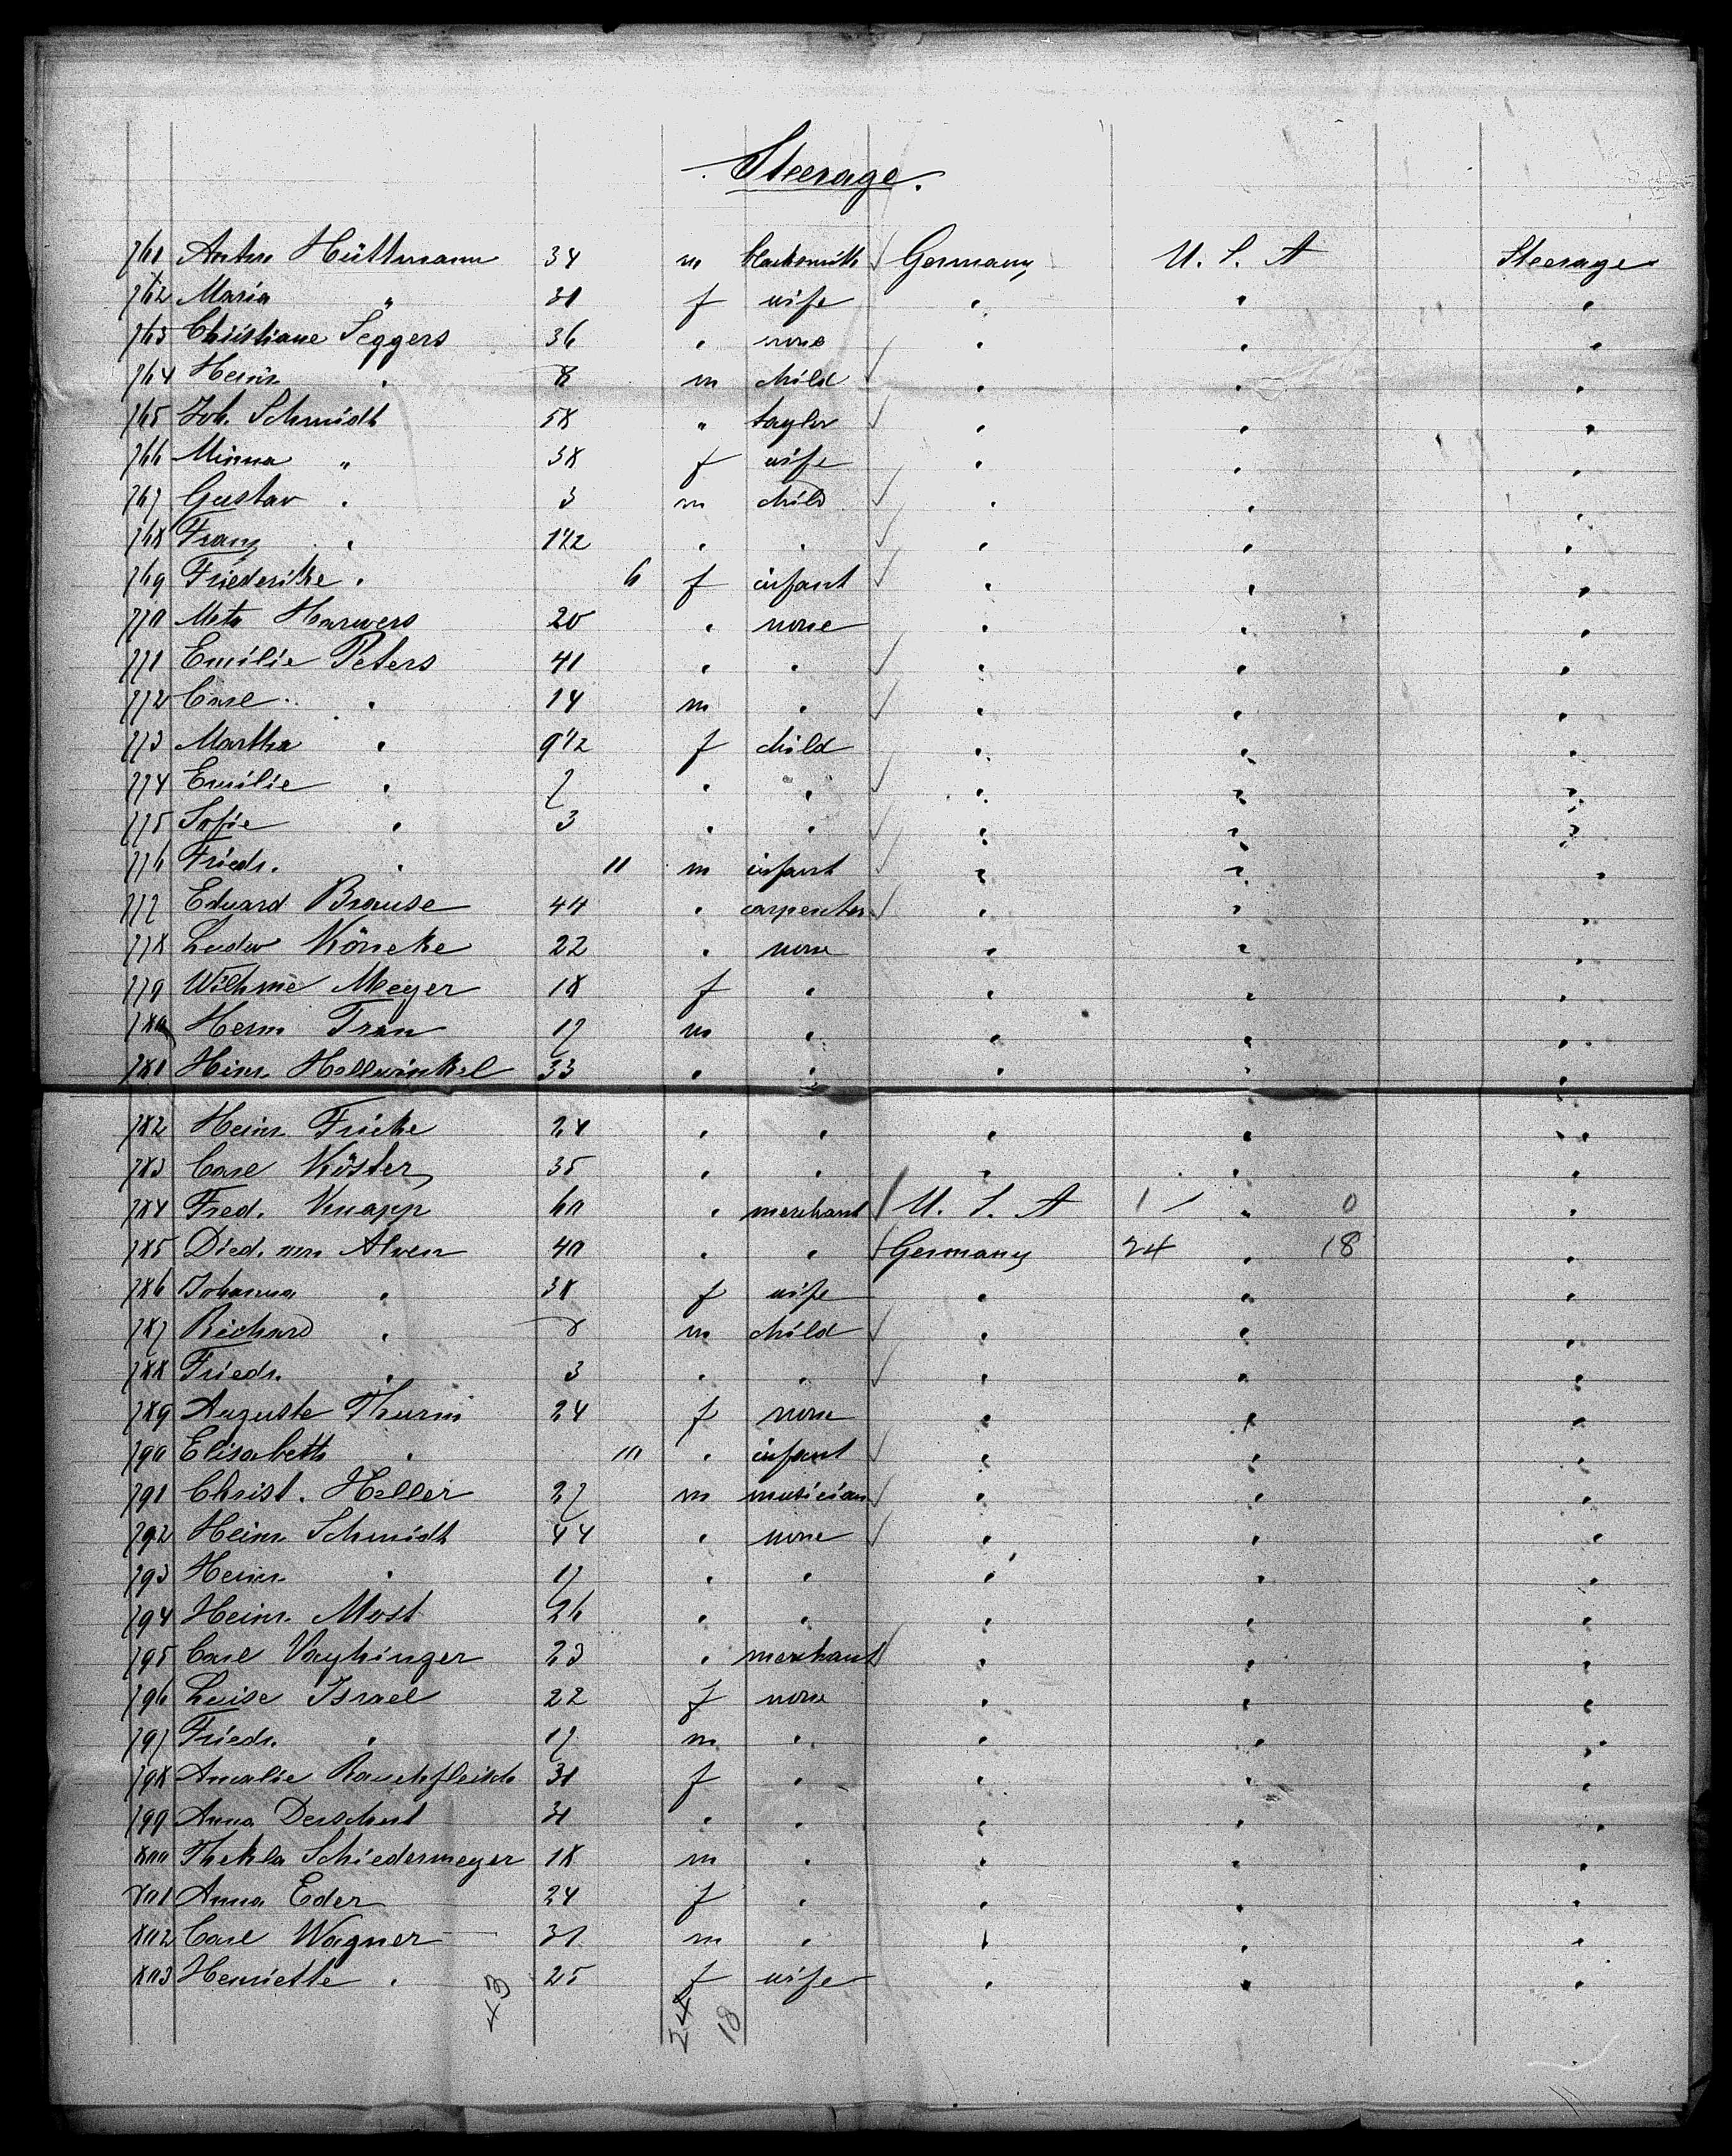 Steerage.
761 Anton Hüttmann 34 m blacksmith Germany U. S. A Steerage
762 Maria " 31 f wife " " "
763 Christiane Seggers 36 " none " " "
764 Heinr. " 8 m child " " "
765 Joh. Schmidt 38 " taylor " " "
766 Minna " 38 f wife " " "
767 Gustav " 3 m child " " "
768 Franz " 1 1/2 " " " " "
769 Friederike " 6 f infant " " "
770 Meta Harwers 20 " none " " "
771 Emilie Peters 41 " " " " "
772 Carl " 14 m " " " "
773 Martha " 9 1/2 f child " " "
774 Emilie " 7 " " " " "
775 Sofie " 3 " " " " "
776 Friedr. " 11 m infant " " "
777 Eduard Brause 44 " carpenter " " "
778 Ludw Köneke 22 " none " " "
779 Wilhme Meyer 18 f " " " "
780 Herm Tran 17 m " " " "
781 Heinr. Hellwinkel 33 " " " " "
782 Heinr. Fricke 24 " " " " "
783 Carl Köster 35 " " " " "
784 Fred. Knapp 60 " merchant U. S. A 1 " 0 "
785 Died. von Alven 40 " " Germany 24 " 18 "
786 Johanna " 38 f wife " " "
787 Richard " 8 m child " " "
788 Friedr. " 3 " " " " "
789 Auguste Thurm 24 f none " " "
790 Elisabeth " 10 " infant " " "
791 Christ. Heller 27 m musician " " "
792 Heinr. Schmidt 44 " none " " "
793 Heinr. " 17 " " " " "
794 Heinr. Most 26 " " " " "
795 Carl Vayhinger 23 " merchant " " "
796 Luise Israel 22 f none " " "
797 Friedr. " 17 m " " " "
798 Amalie Rauchfleisch 31 f " " " "
799 Anna Derschut 31 " " " " "
800 Thekla Schiedermeyer 18 m " " " "
801 Anna Eder 24 f " " " "
802 Carl Wagner 31 m " " " "
803 Henriette " 25 f wife " " "
43 24 18